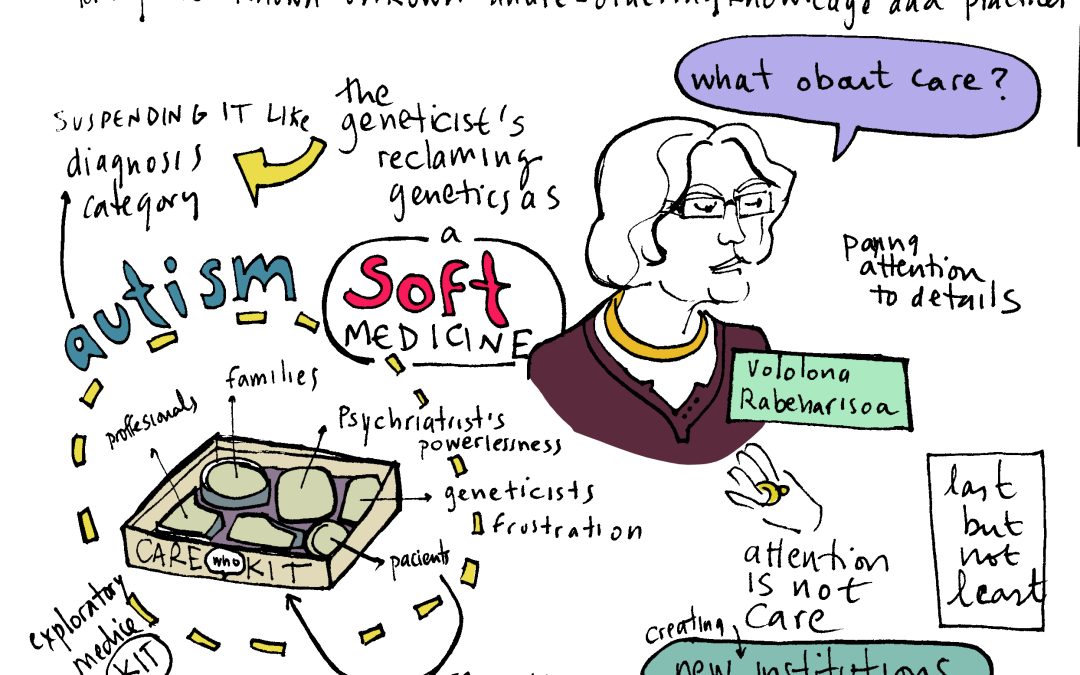 knowledge and practices
what about care?
SUSPENDING IT LIKE
diagnosis
category
the
geneticist's
reclaming
genetics as
a
SOFT
MEDICINE
autism
paying
attention
to details
Vololona
Rabeharisoa
families
proffesionals
Psychriatrist's
powerlessness
geneticists
frustration
pacients
CARE who KIT
exploratory
medice
KIT
attention
IS not
care
last
but
not
least
creating
new institutions